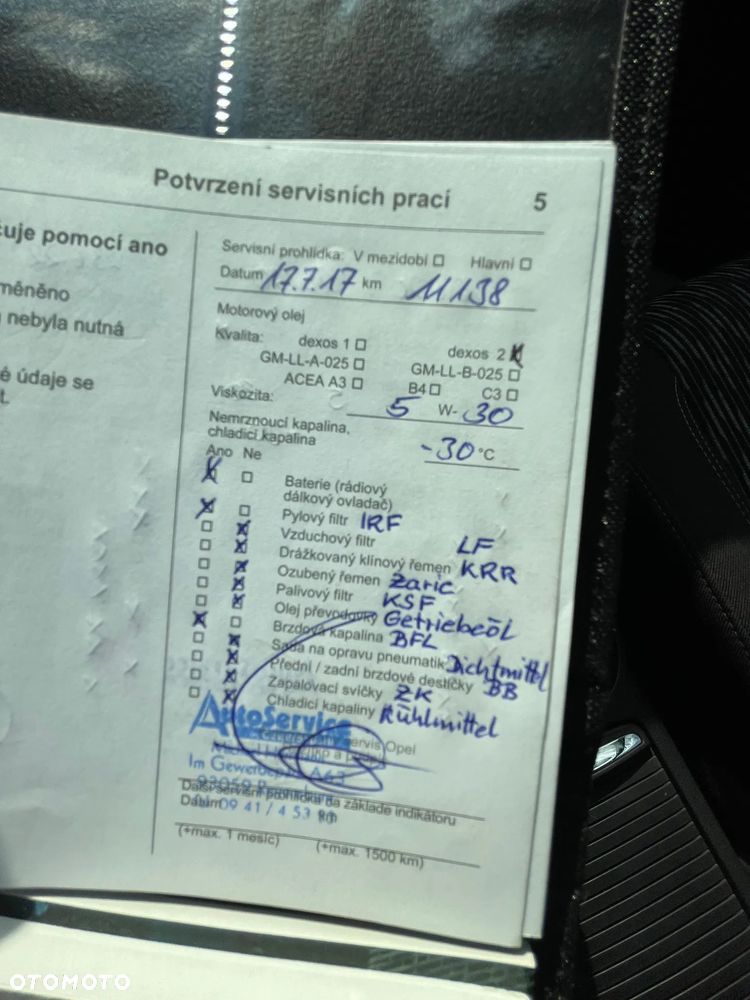 Potvrzení servisních prací 5
čuje pomocí ano
měněno
nebyla nutná
é údaje se
t.
Servisní prohlídka: V mezidobí Hlavní
Datum 17.7.17 km 11138
Motorový olej
Kvalita: dexos 1 dexos 2
GM-LL-A-025 GM-LL-B-025
ACEA A3 B4 C3
Viskozita: 5 W- 30
Nemrznoucí kapalina,
chladicí kapalina -30 °C
Ano Ne
Baterie (rádiový
dálkový ovladač)
Pylový filtr IRF
Vzduchový filtr LF
Drážkovaný klínový řemen KRR
Ozubený řemen
Palivový filtr KSF
Olej převodovky Getriebeöl
Brzdová kapalina BFL
Sada na opravu pneumatik Dichtmittel
Přední / zadní brzdové destičky BB
Zapalovací svíčky ZK
Chladicí kapaliny Kühlmittel
AutoService
servis Opel
Im
93059
Další servisní prohlídka na základě indikátoru
Datum km
09 41 / 4 53
(+max. 1 měsíc) (+max. 1500 km)
OTOMOTO